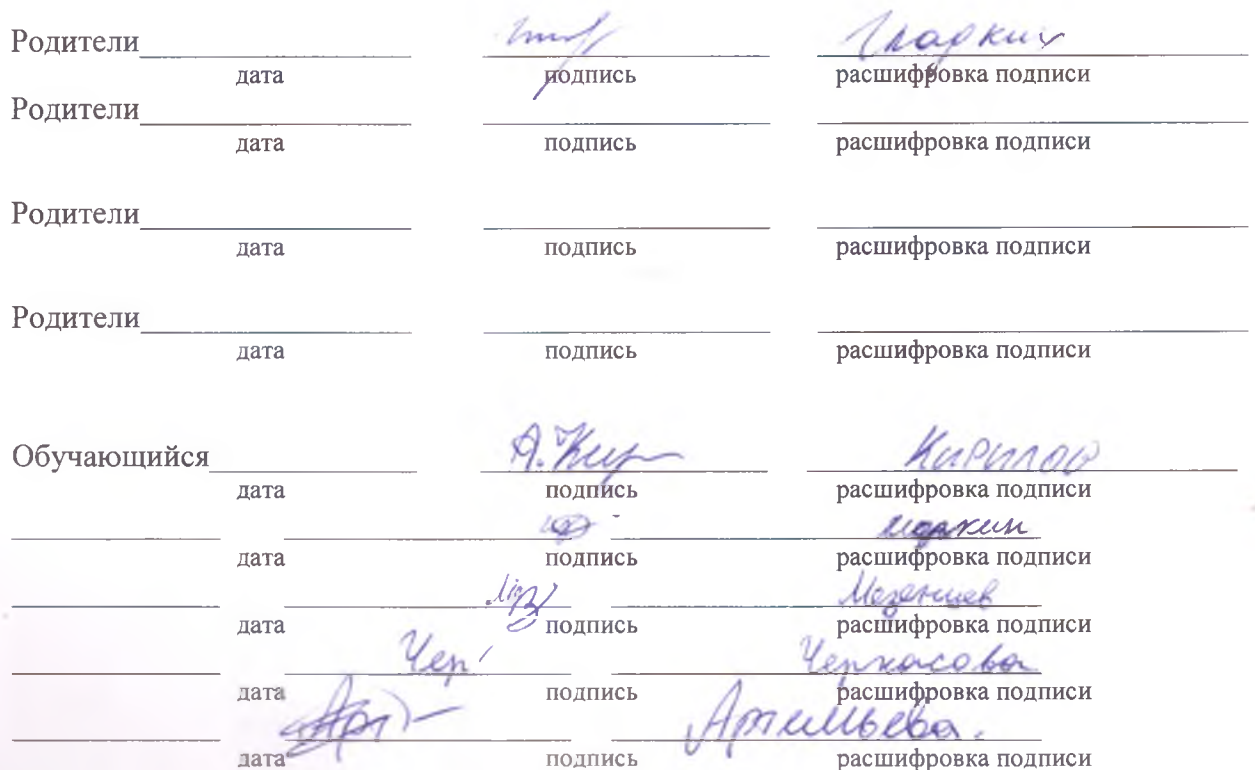 Родители Гладких
дата подпись расшифровка подписи
Родители
дата подпись расшифровка подписи
Родители
дата подпись расшифровка подписи
Родители
дата подпись расшифровка подписи
Обучающийся А.Кир Кирилов
дата подпись расшифровка подписи
дата подпись расшифровка подписи
Мезенцев
дата подпись расшифровка подписи
Чер Черкасова
дата подпись расшифровка подписи
Артемьева.
дата подпись расшифровка подписи